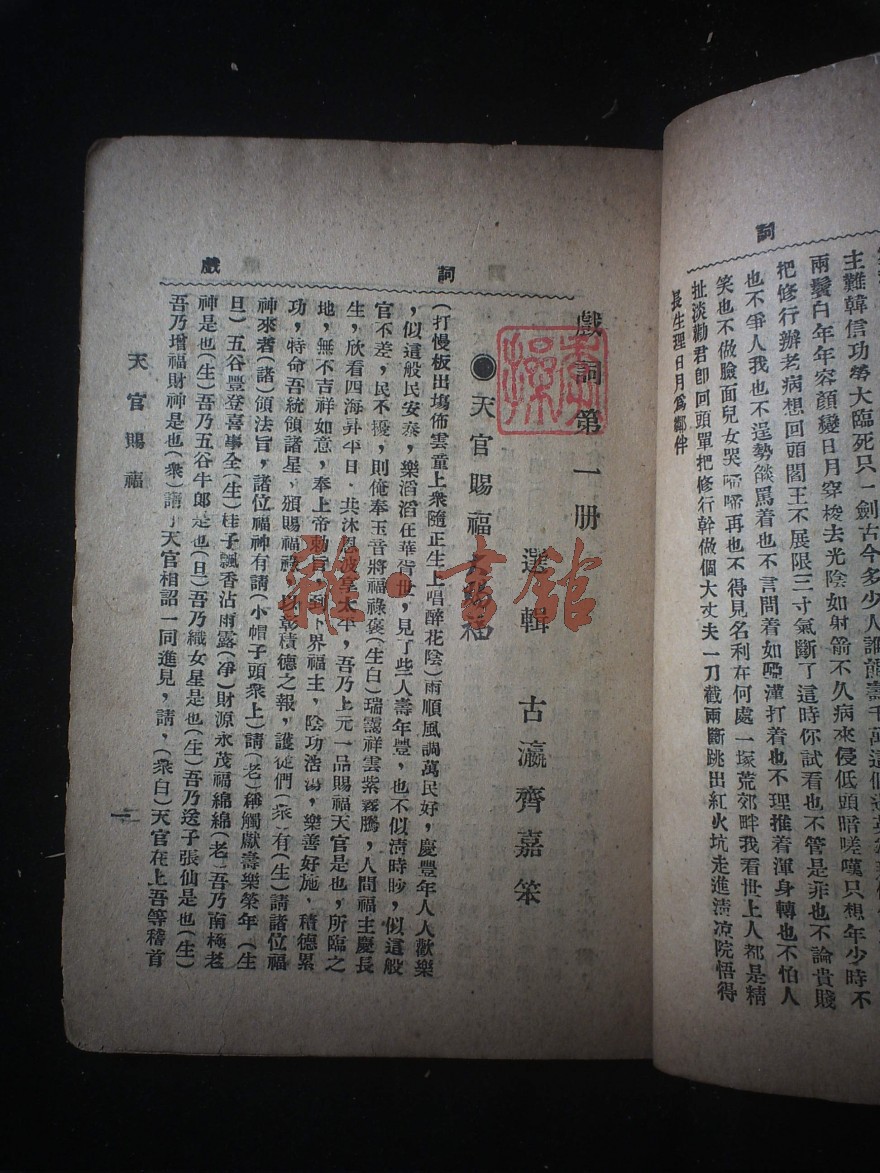 詞
主難韓信功勞大臨死只一劍古今多少人誰能壽千萬這個
兩鬢白年年容顏變日月穿梭去光陰如射箭不久病來侵低頭暗嗟嘆只想年少時不
把修行辦老病想回頭閻王不展限三寸氣斷了這時你試看也不管是菲也不論貴賤
也不爭人我也不逞勢燄罵着也不言問着如啞漢打着也不理推着渾身轉也不怕人
笑也不做臉面兒女哭啼啼再也不得見名利在何處一塚荒郊畔我看世上人都是精
扯淡勸君卽回頭單把修行幹做個大丈夫一刀截兩斷跳出紅火坑走進淸凉院悟得
長生理日月爲鄰伴
戲 詞
戲詞第一册
選輯 古瀛齊嘉笨
●天官賜福 大賜福
(打慢板出塲佈雲童上衆隨正生上唱醉花陰)雨順風調萬民好,慶豐年人人歡樂
,似這般民安泰,樂滔滔在華胥世,見了些人壽年豐,也不似淸時眇,似這般
官不差,民不擾,則俺奉玉音將福祿褒(生白)瑞靄祥雲紫霧騰,人間福主慶長
生,欣看四海昇平日,共沐恩波享太平,吾乃上元一品賜福天官是也,所臨之
地,無不吉祥如意,奉上帝勅旨,到下界福主,陰功浩蕩,樂善好施,積德累
功,特命吾統領諸星,頒賜福祿,以彰積德之報,護從們(衆)有(生)請諸位福
神來者(諸)領法旨,諸位福神有請(小帽子頭衆上)請(老)稱觸獻壽樂榮年(生
旦)五谷豐登喜事全(生)桂子飄香沾雨露(凈)財源永茂福綿綿(老)吾乃南極老
神是也(生)吾乃五谷牛郎是也(旦)吾乃織女星是也(生)吾乃送子張仙是也(生)
吾乃增福財神是也(衆)請了天官相詔一同進見,請,(衆白)天官在上吾等稽首
天官賜福
一
雜 書館